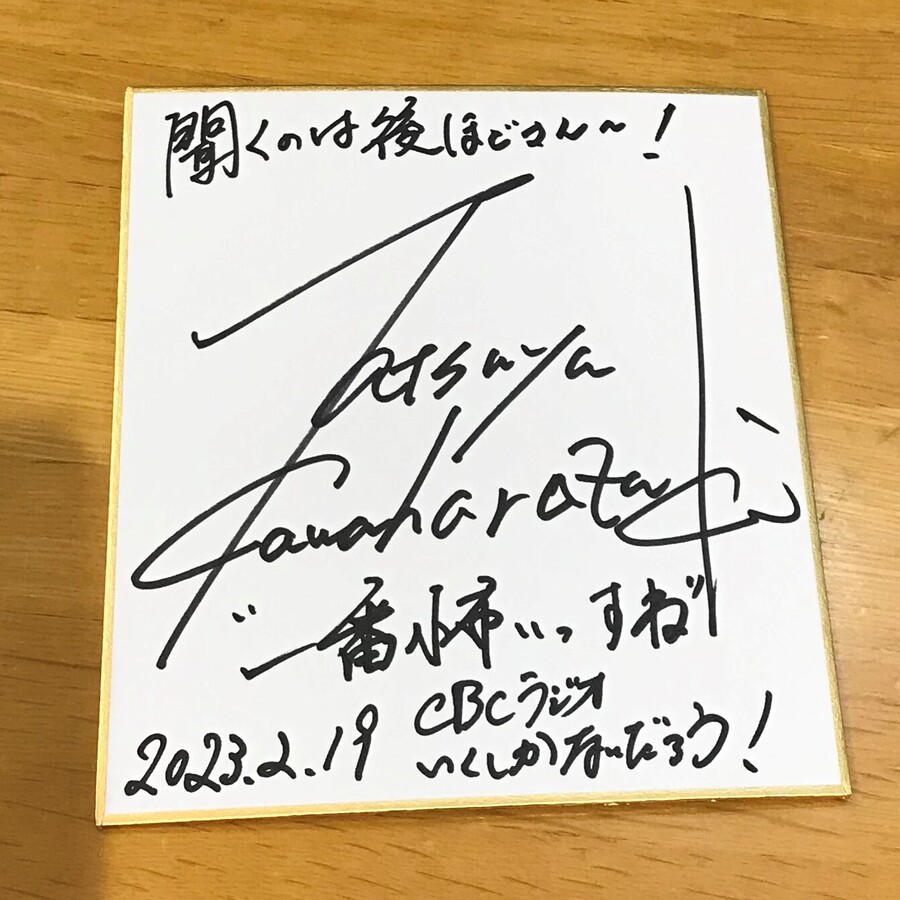 聞くのは後ほどさん〜!
Tatsuya
Kawaharazaki
"一番怖いっすね"
2023.2.19
CBCラジオ
いくしかないだろう!